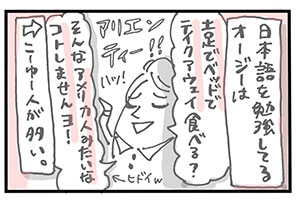 日本語を勉強してる
オージーは
アリエン
ティー!!
土足でベッドで
テイクアウェイ食べる?
ハッ!
そんなアメリカ人みたいな
コトしませんヨ!
←ヒドイw
⇨こーゆー人が多い。